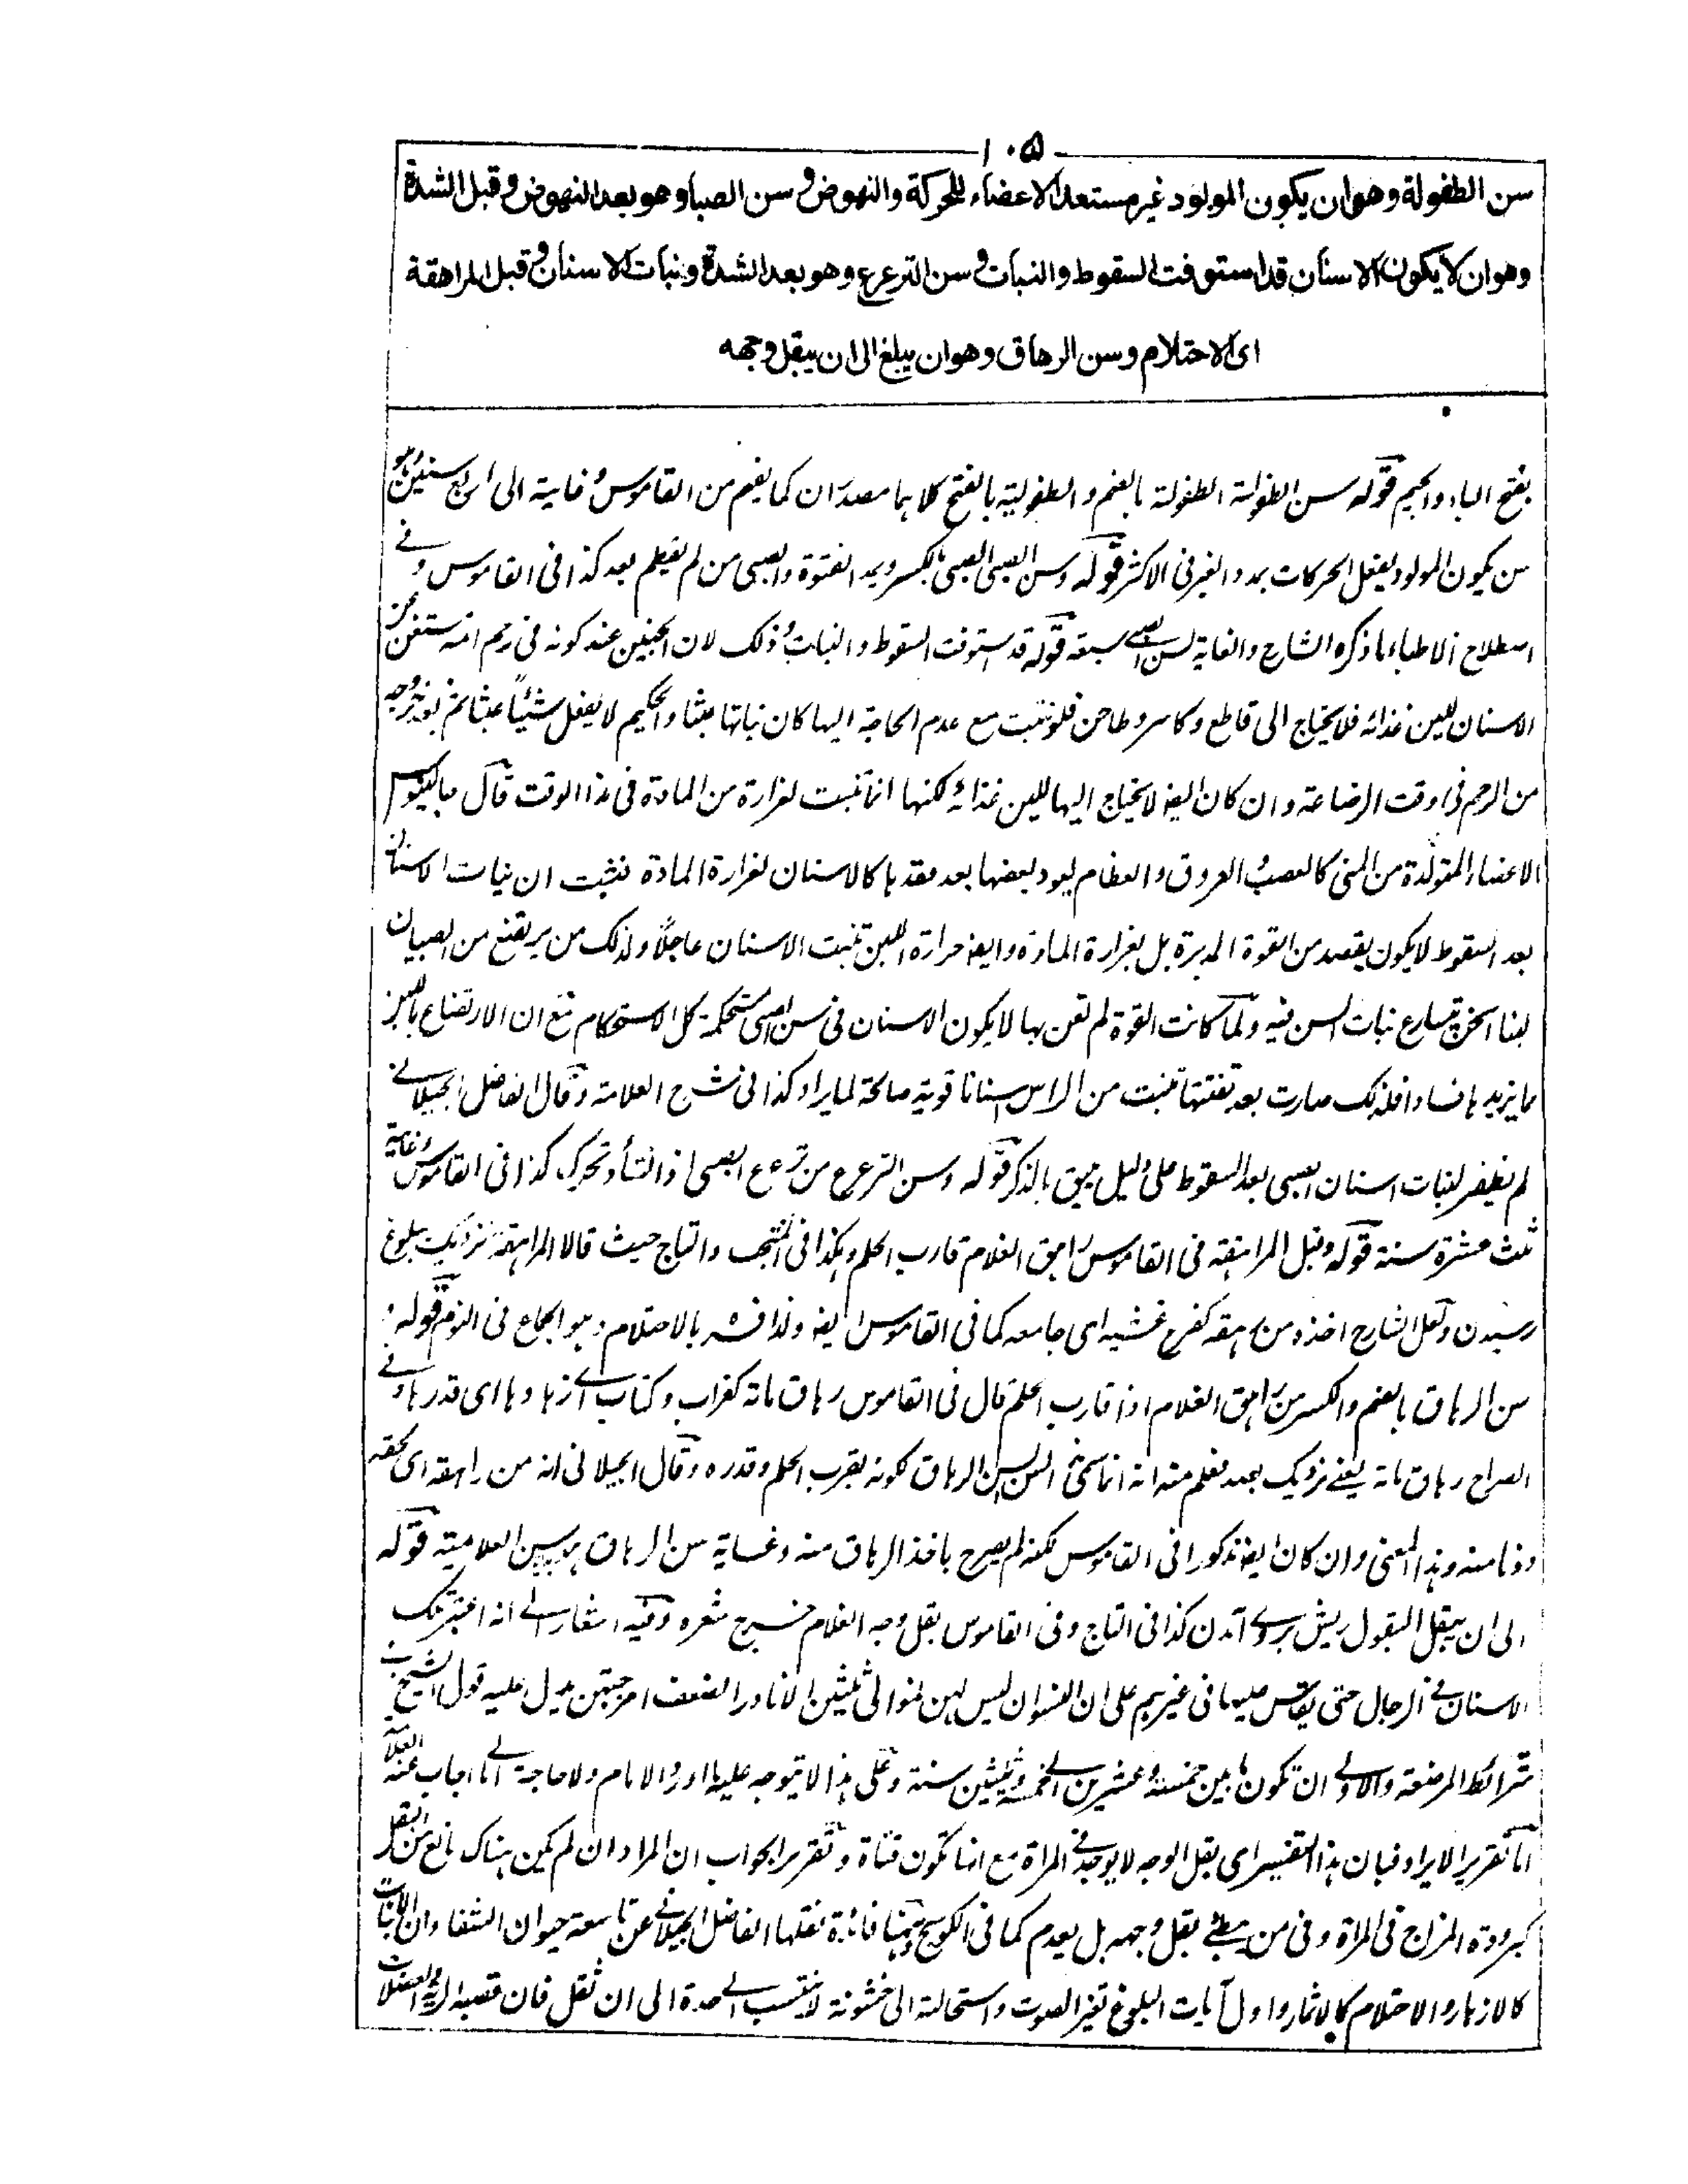 ١٠٥
سن الطفولة وهو ان يكون المولود غير مستعد الاعضاء للحركة والنهوض و سن الصبا وهو بعد النهوض وقبل الشدة
وهو ان لا يكون الاسنان قد استوفت السقوط والنبات و سن الترعرع وهو بعد الشدة ونبات الاسنان و قبل المراهقة
اى الاحتلام وسن الرهاق وهو ان يبلغ الى ان يبقل وجهه
بفتح الباء والجيم قوله سن الطفولة الطفولة بالضم والطفولية بالفتح كلاهما مصدران كما يفهم من القاموس وغاية الى اربع سنين وهو
من يكون المولود يفعل الحركات بمدد الغير فى الاكثر قوله وسن الصبى الصبى بالكسر ويمد الفتوة والصبى من لم يفطم بعد كذا فى القاموس وفى
اصطلاح الاطباء ما ذكره الشارح والغاية لسن الصبى سبعة قوله قد استوفت السقوط والنبات وذلك لان الجنين عند كونه فى رحم امه مستغن عن
الاسنان للين غذائه فلا يحتاج الى قاطع وكاسر وطاحن فلو نبتت مع عدم الحاجة اليها كان نباتها عبثا والحكيم لا يفعل شيئاً عبثا ثم بعد خروجه
من الرحم فى وقت الرضاعة وان كان ايضا لا يحتاج اليها للين غذائه لكنها انما تنبت لغزارة من المادة فى هذا الوقت قال جالينوس
الاعضاء المتولدة من المنى كالعصب والعروق والعظام يعود بعضها بعد فقدها كالاسنان لغزارة المادة فثبت ان نبات الاسنان
بعد السقوط لا يكون بقصد من القوة المدبرة بل بغزارة المادة وايضا حرارة اللبن تنبت الاسنان عاجلاً ولذلك من يرتضع من الصبيان
لبنا اسخن يتسارع نبات السن فيه ولما كانت القوة لم تعن بها لا يكون الاسنان فى سن الصبى مستحكمة كل الاستحكام مع ان الارتضاع باللبن
مما يزيدها فسادا فلذلك صارت بعد تفتتها تنبت من الراس اسنانا قوية صالحة لما يراد كذا فى شرح العلامة وقال الفاضل الجيلانى
لم نظفر لنبات اسنان الصبى بعد السقوط على دليل يليق بالذكر قوله وسن الترعرع من ترعرع الصبى اذا نشأ وتحرك كذا فى القاموس وغاية
ثلث عشرة سنة قوله وقبل المراهقة فى القاموس راهق الغلام قارب الحلم وهكذا فى المنتخب والتاج حيث قالا المراهقة نزديك ببلوغ
رسيدن ولعل الشارح اخذه من رهقه كفرح غشيه اى جامعه كما فى القاموس ايضا ولذا فسره بالاحتلام وهو الجماع فى النوم قوله و
سن الرهاق بالضم والكسر من راهق الغلام اذا قارب الحلم قال فى القاموس رهاق مائة كغراب وكتاب اى زهاوها اى قدرها وفى
الصراح رهاق مائة يعنى نزديك بصد فعلم منه انه انما سمى السن بسن الرهاق لكونه بقرب الحلم وقدره وقال الجيلانى انه من راهقه اى لحقه
ودنا منه وهذا المعنى وان كان ايضا مذكورا فى القاموس لكنه لم يصرح باخذ الرهاق منه وغاية سن الرهاق قوله
الى ان يبقل البقول ريش بر روى آمدن كذا فى التاج وفى القاموس بقل وجه الغلام خرج شعره وفيه اشعار الى انه اعتبر تلك
الاسنان فى الرجال حتى يقاس عليها فى غيرهم على ان النسوان ليس لهن نمو الى ثلثين الا نادرا لضعف امزجتهن يدل عليه قول الشيخ فى
شرائط المرضعة والاولى ان تكون ما بين خمسة وعشرين الى خمسة وثلثين سنة وعلى هذا لا يتوجه عليه ما اورد الامام ولا حاجة الى ما اجاب عنه العلامة
اما تقرير الايراد فبان هذا التفسير اى بقل الوجه لا يوجد فى المراة مع انها تكون فتاة وتقرير الجواب ان المراد ان لم يكن هناك مانع من البقل
كبرودة المزاج فى المراة وفى من يبطئ بقل وجهه بل يعدم كما فى الكوسج وههنا فائدة نقلها الفاضل الجيلانى عن تاسعة حيوان الشفا وان الانبات
كالازهار والاحتلام كالاثمار واول آيات البلوغ تغير الصوت واستحالته الى خشونة لا ينتسب الى حدة الى ان ثقل فان قصبة الرية والعضلات